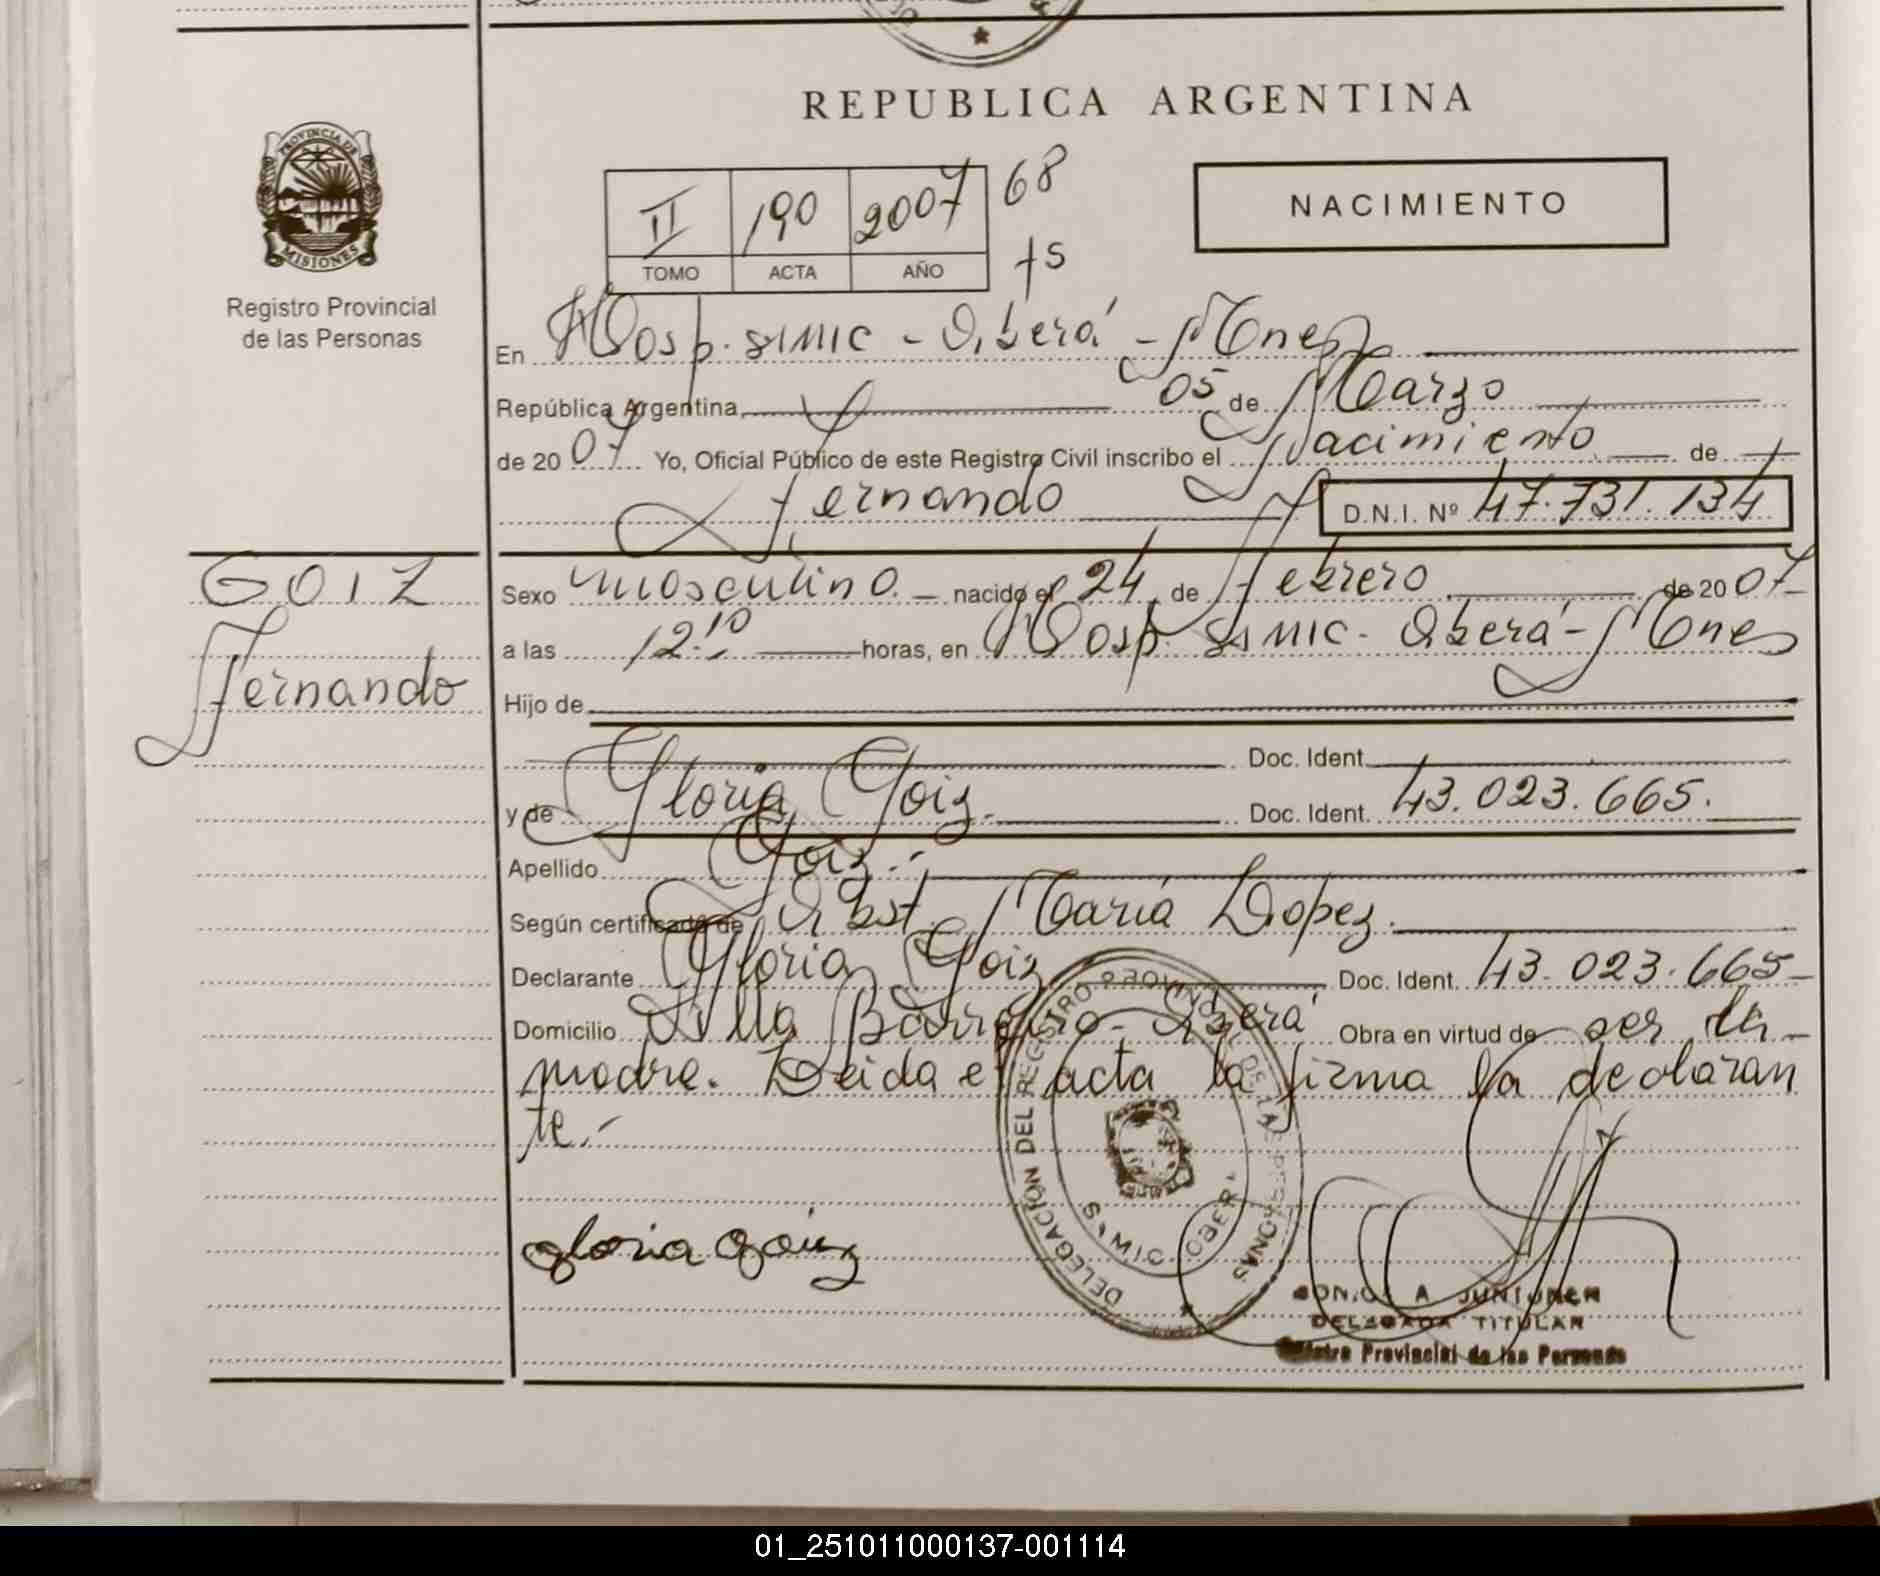 REPUBLICA ARGENTINA
PROVINCIA DE MISIONES
Registro Provincial
de las Personas
II 190 2007 68
TOMO ACTA AÑO
NACIMIENTO
En Hosp. SAMIC - Oberá - Mnes
República Argentina, 05 de Marzo
de 2007 Yo, Oficial Público de este Registro Civil inscribo el Nacimiento de
Fernando D.N.I. Nº 47.731.134
GOIZ
Fernando
Sexo masculino. nacido el 24 de Febrero de 2007
a las 12:10 horas, en Hosp. SAMIC - Oberá - Mnes
Hijo de
Doc. Ident.
y de Gloria Goiz. Doc. Ident. 43.023.665.
Apellido Goiz.-
Según certificado de Obst. María Lopez.
Declarante Gloria Goiz Doc. Ident. 43.023.665
Domicilio Villa Barreyro - Oberá Obra en virtud de ser la
madre. Leida el acta la firma la declaran
te.-
gloria goiz
DELEGACIÓN DEL REGISTRO PROVINCIAL DE LAS PERSONAS
OBERA
DELEGADA TITULAR
Registro Provincial de las Personas
01_251011000137-001114